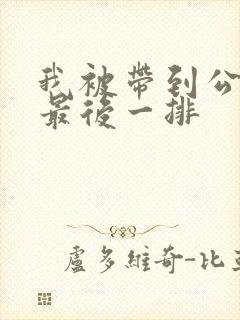 我被帶到公
最後一排
盧多維奇-比